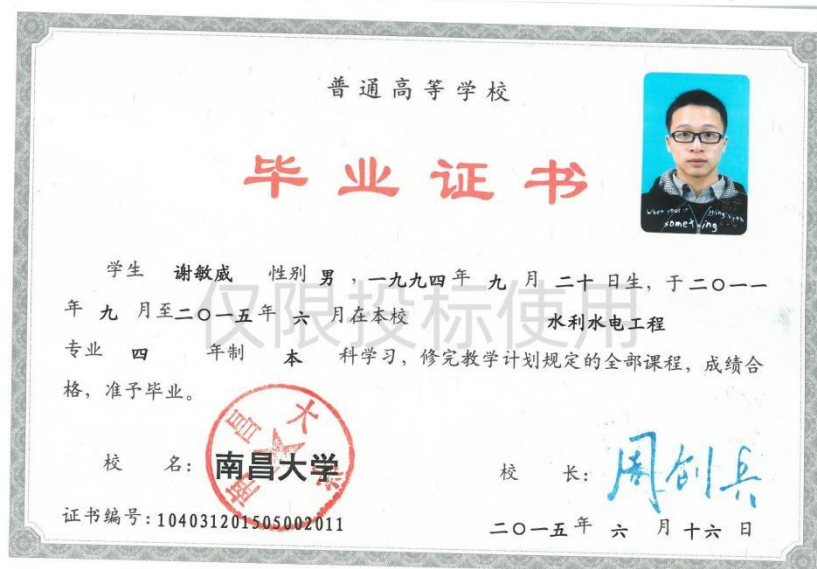 普通高等学校
毕业证书
学生 谢敏威 性别 男 ，一九九四年 九 月 二十 日生，于二〇一一
年 九 月至二〇一五年 六 月在本校 水利水电工程
专业 四 年制 本 科学习，修完教学计划规定的全部课程，成绩合
格，准予毕业。
仅限投标使用
校 名：南昌大学
南昌大学
校 长：周创兵
证书编号：104031201505002011
二〇一五年 六 月十六日